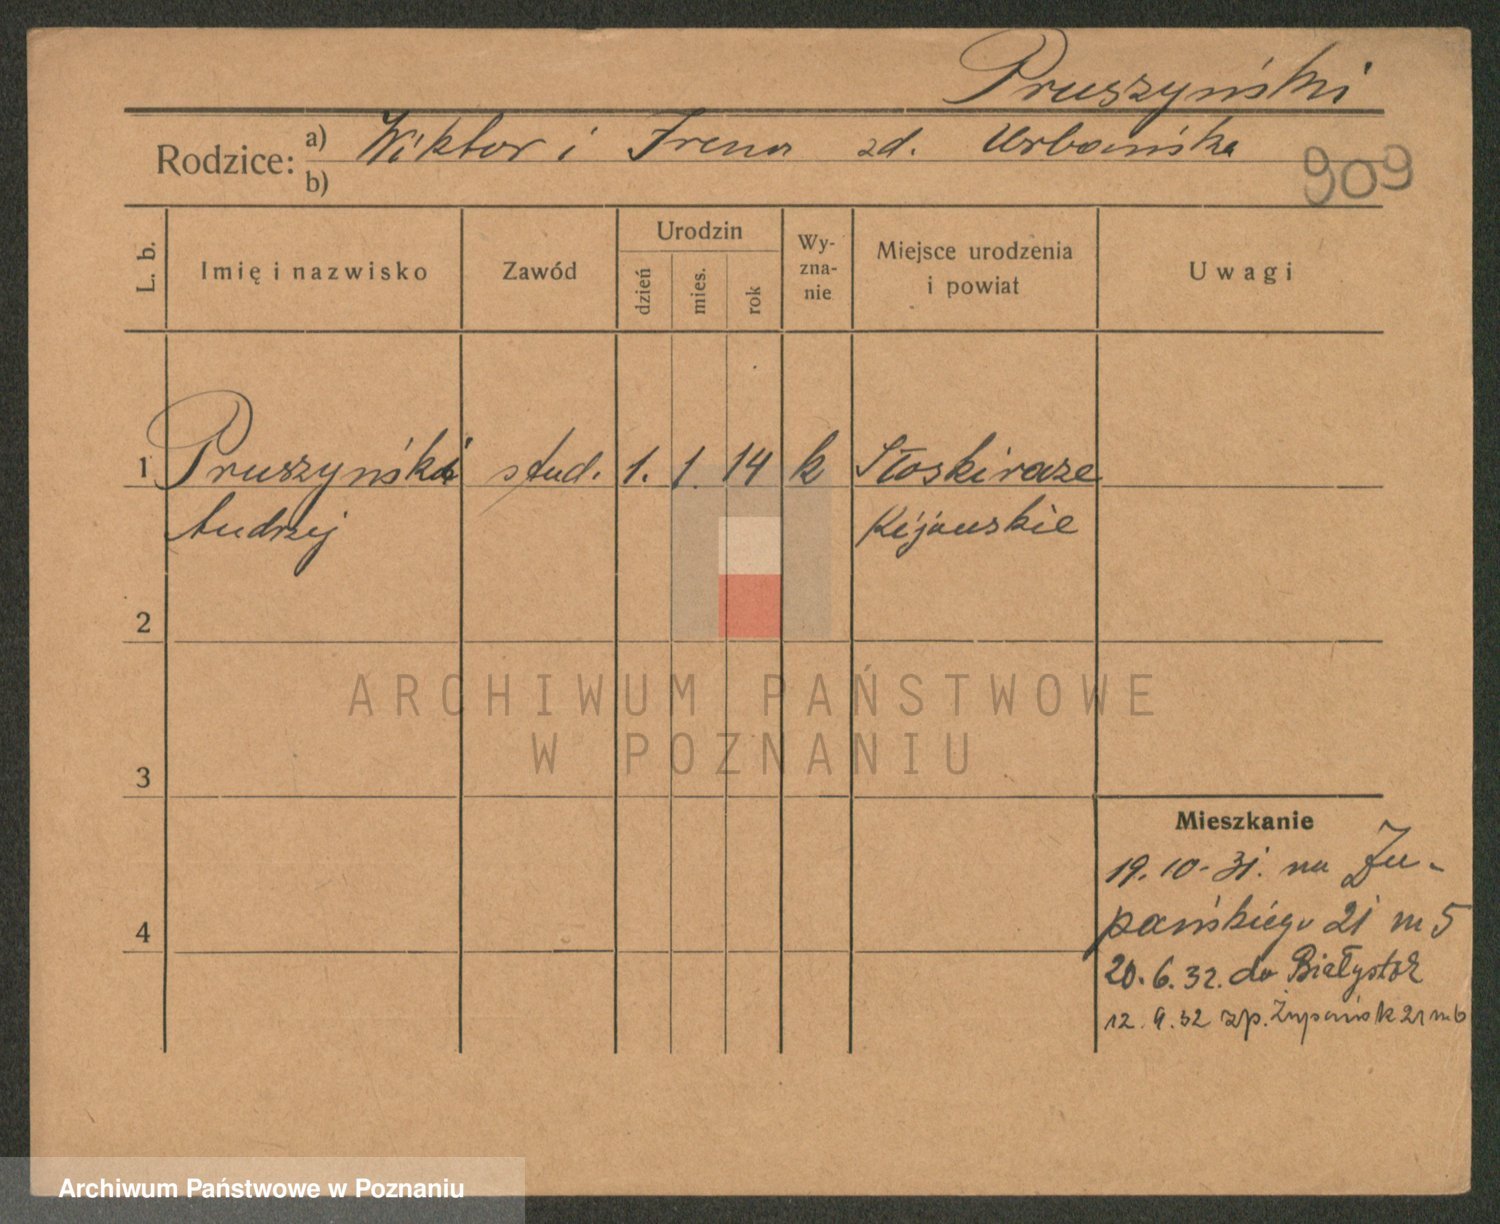 Pruszyński
Rodzice: a) Wiktor i Irena zd. Urbańska
b)
909
L. b.
Imię i nazwisko
Zawód
Urodzin
dzień
mies.
rok
Wy-
zna-
nie
Miejsce urodzenia
i powiat
Uwagi
1 Pruszyński stud. 1. 1. 14 k
Andrzej Kijowskie
2
3
4
ARCHIWUM PAŃSTWOWE
W POZNANIU
Mieszkanie
19.10.31. na Żu-
pańskiego 21 m 5
20.6.32. do Białystok
12.9.32 zp. Żupańsk 21 m 6
Archiwum Państwowe w Poznaniu